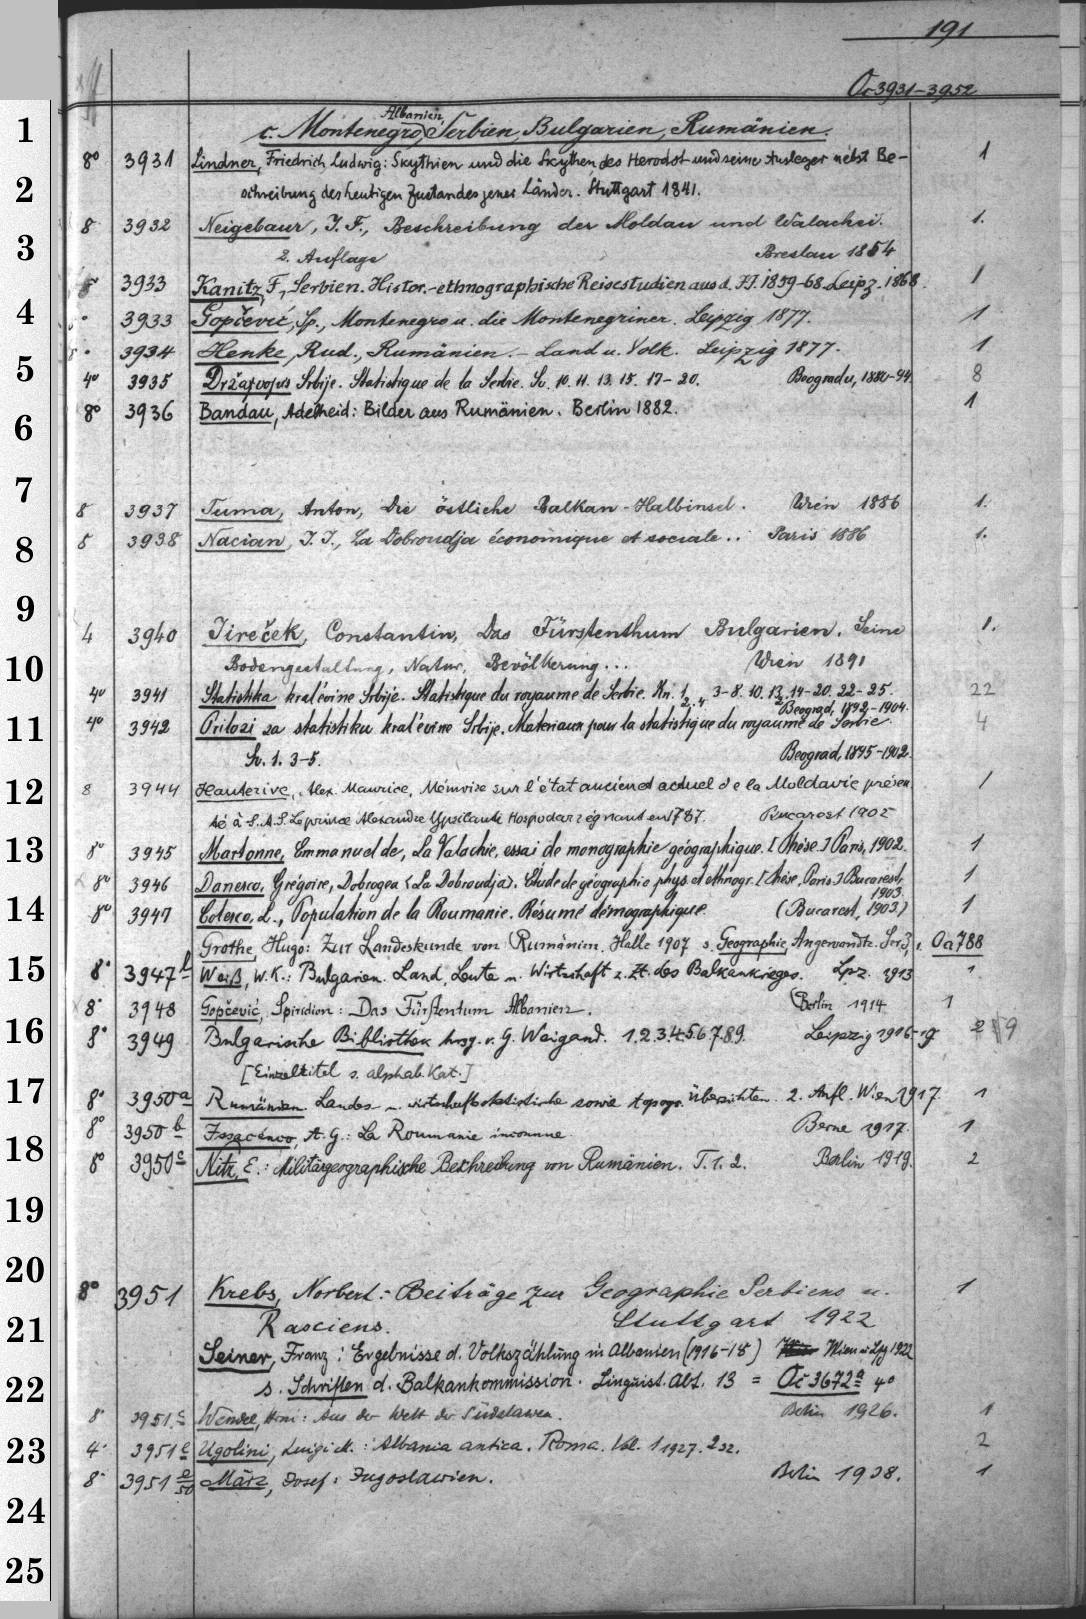 191
Oc 3931-3952
Albanien,
c. Montenegro, Serbien, Bulgarien, Rumänien.
1
8° 3931 Lindner, Friedrich Ludwig: Skythien und die Skythen des Herodot und seine Ausleger nebst Be- 1
2
schreibung des heutigen Zustandes jener Länder. Stuttgart 1841.
8 3932 Neigebaur, J. F., Beschreibung der Moldau und Walachei. 1.
3
2. Auflage Breslau 1854
8 3933 Kanitz, F., Serbien. Histor.-ethnographische Reisestudien aus d. JJ. 1859-68. Leipz. 1868. 1
4
3933 Gopčević, Sp., Montenegro u. die Montenegriner. Leipzig 1877. 1
3934 Henke, Rud., Rumänien. - Land u. Volk. Leipzig 1877. 1
5
4° 3935 Državopis Srbije. Statistique de la Serbie. Sv. 10. 11. 13. 15. 17-20. Beogradu, 1880-94. 8
8° 3936 Bandau, Adelheid: Bilder aus Rumänien. Berlin 1882. 1
6
7
8 3937 Tuma, Anton, Die östliche Balkan-Halbinsel. Wien 1886 1.
8 3938 Nacian, J. J., La Dobroudja économique et sociale.. Paris 1886 1.
8
9
4 3940 Jireček, Constantin, Das Fürstenthum Bulgarien. Seine 1.
10
Bodengestaltung, Natur, Bevölkerung... Wien 1891
4° 3941 Statistika kraljevine Srbije. Statistique du royaume de Serbie. Kn. 1, 2. 4. 3-8. 10. 13, 2 14-20. 22-25. 22
Beograd, 1892-1904.
11
4° 3942 Prilozi za statistiku kraljevine Srbije. Materiaux pour la statistique du royaume de Serbie. 4
Sv. 1. 3-5. Beograd, 1895-1902.
12
8 3944 Hauterive, Alex. Maurice, Mémoire sur l'état ancien et actuel de la Moldavie présen 1
té à S. A. S. Le prince Alexandre Ypsilanti Hospodar régnant en 1787. Bucarest 1902
13
8° 3945 Martonne, Emmanuel de, La Valachie, essai de monographie géographique. [Thèse.] Paris, 1902. 1
8° 3946 Danesco, Grégoire, Dobrogea <La Dobroudja>. Étude de géographie phys. et ethnogr. [Thèse, Paris.] Bucarest, 1
1903.
14
8° 3947 Colesco, L., Population de la Roumanie. Résumé démographique. (Bucarest, 1903.) 1
Grothe, Hugo: Zur Landeskunde von Rumänien. Halle 1907 s. Geographie, Angewandte. Ser. 3, 1. Oa 788
15
8° 3947b Weiß, W. K.: Bulgarien. Land, Leute u. Wirtschaft z. Zt. des Balkankrieges. Lpz. 1913 1
8° 3948 Gopčević, Spiridion: Das Fürstentum Albanien. Berlin 1914 1
16
8° 3949 Bulgarische Bibliothek hrsg. v. G. Weigand. 1.2.3.4.5.6.7.8.9. Leipzig 1916-19 9
[Einzeltitel s. alphab. Kat.]
17
8° 3950a Rumänien. Landes- u. wirtschaftsstatistische sowie topogr. Übersichten. 2. Aufl. Wien 1917. 1
8° 3950b A. G.: La Roumanie inconnue Berne 1917. 1
18
8° 3950c Nitz, E.: Militärgeographische Beschreibung von Rumänien. T. 1. 2. Berlin 1919. 2
19
20
8° 3951 Krebs, Norbert: Beiträge zur Geographie Serbiens u. 1
21
Rasciens. Stuttgart 1922
Seiner, Franz: Ergebnisse d. Volkszählung in Albanien (1916-18) Wien u. Lpz 1922
22
s. Schriften d. Balkankommission. Linguist. Abt. 13 = Oc 3672a 4°
8° 3951c Wendel, Herm: Aus der Welt der Südslawen. Berlin 1926. 1
23
4° 3951e Ugolini, Luigi M.: Albania antica. Roma. Vol. 1 1927. 2 32. 2
8° 3951e/50 März, Josef: Jugoslawien. Berlin 1938. 1
24
25